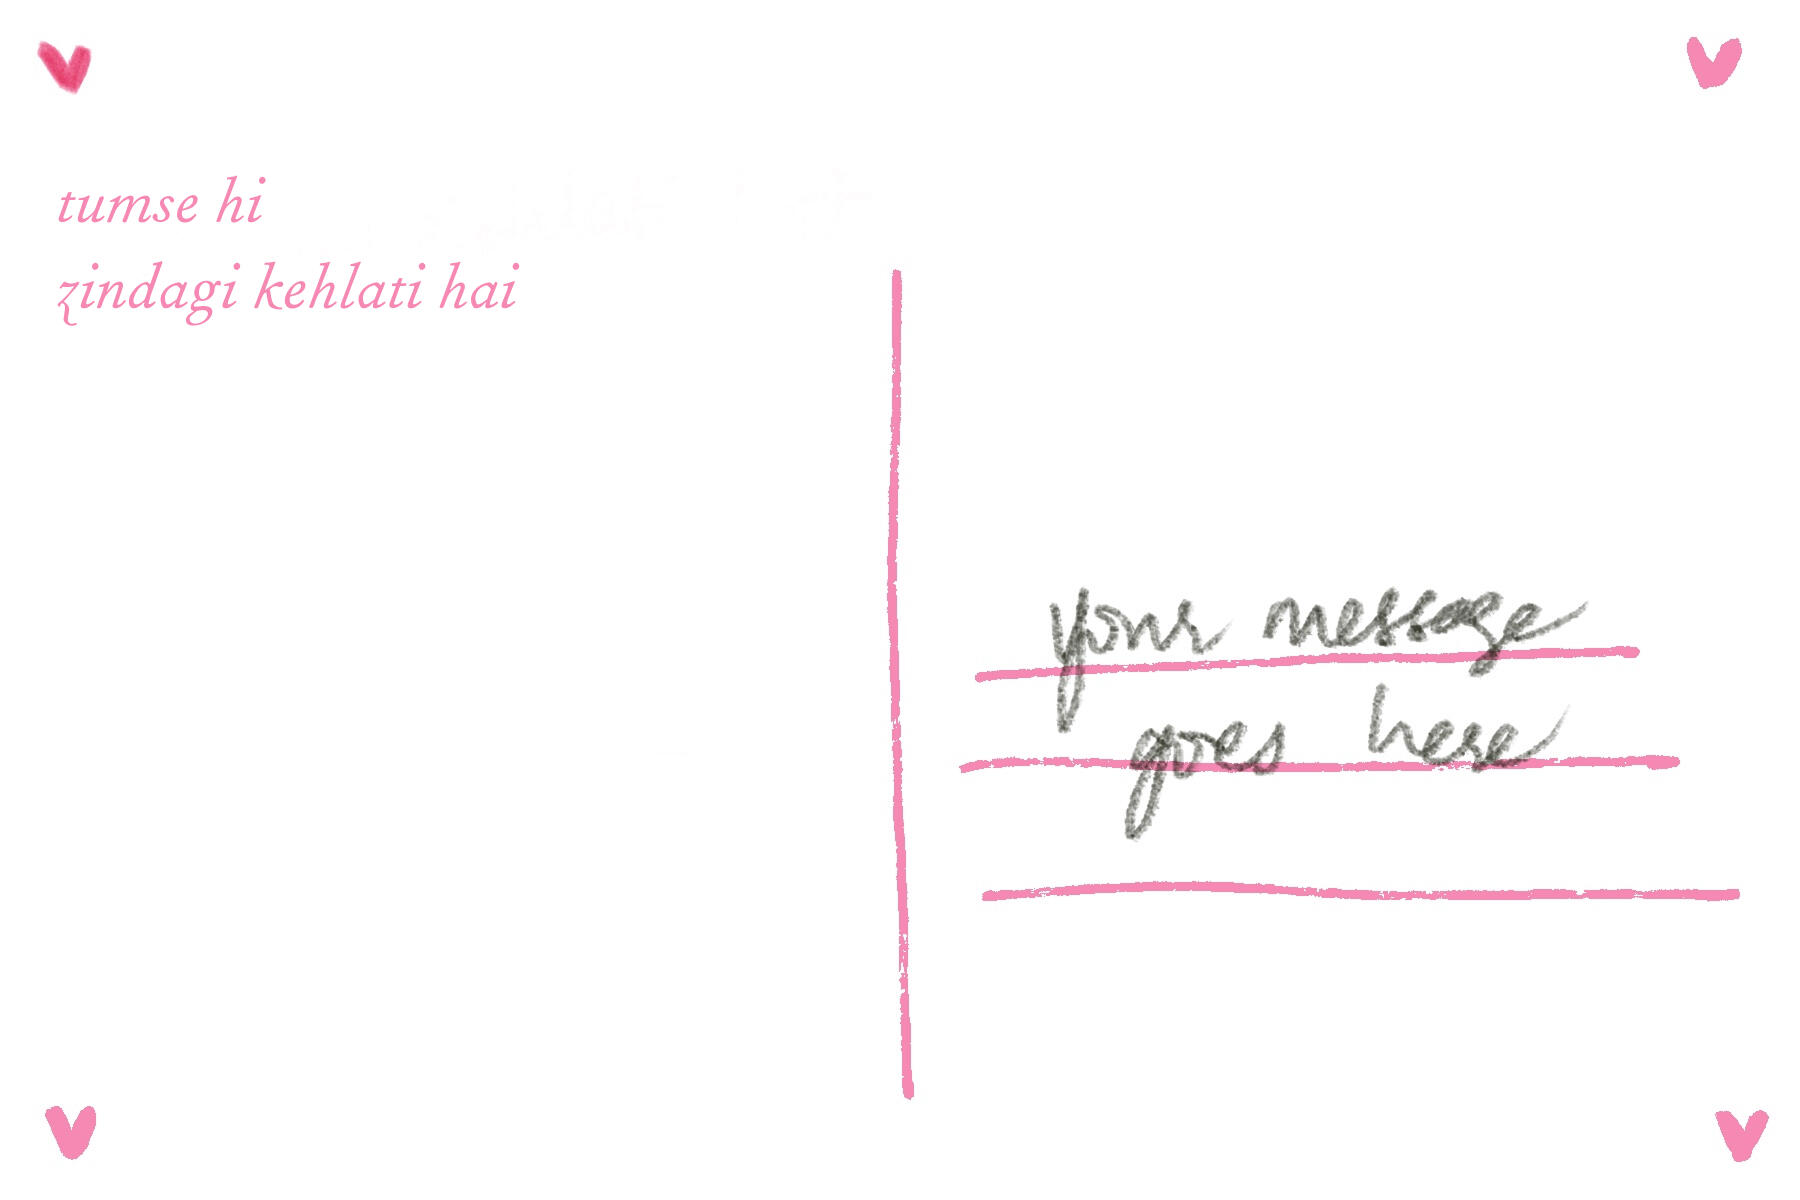 tumse hi
zindagi kehlati hai
your message
goes here